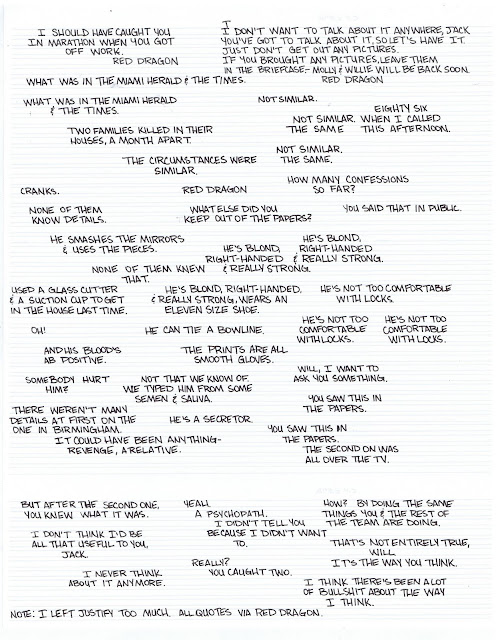 I SHOULD HAVE CAUGHT YOU
IN MARATHON WHEN YOU GOT
OFF WORK.
RED DRAGON
I
I DON'T WANT TO TALK ABOUT IT ANYWHERE, JACK
YOU'VE GOT TO TALK ABOUT IT, SO LET'S HAVE IT.
JUST DON'T GET OUT ANY PICTURES.
IF YOU BROUGHT ANY PICTURES, LEAVE THEM
IN THE BRIEFCASE- MOLLY & WILLIE WILL BE BACK SOON.
WHAT WAS IN THE MIAMI HERALD & THE TIMES. RED DRAGON
WHAT WAS IN THE MIAMI HERALD
& THE TIMES.
NOT SIMILAR.
EIGHTY SIX
NOT SIMILAR. WHEN I CALLED
THE SAME THIS AFTERNOON.
TWO FAMILIES KILLED IN THEIR
HOUSES, A MONTH APART.
NOT SIMILAR.
THE SAME.
THE CIRCUMSTANCES WERE
SIMILAR.
HOW MANY CONFESSIONS
SO FAR?
CRANKS. RED DRAGON
NONE OF THEM
KNOW DETAILS.
WHAT ELSE DID YOU
KEEP OUT OF THE PAPERS?
YOU SAID THAT IN PUBLIC.
HE SMASHES THE MIRRORS
& USES THE PIECES.
HE'S BLOND,
RIGHT-HANDED
& REALLY STRONG.
HE'S BLOND,
RIGHT-HANDED
& REALLY STRONG.
NONE OF THEM KNEW
THAT.
USED A GLASS CUTTER
& A SUCTION CUP TO GET
IN THE HOUSE LAST TIME.
HE'S BLOND, RIGHT-HANDED,
& REALLY STRONG, WEARS AN
ELEVEN SIZE SHOE.
HE'S NOT TOO COMFORTABLE
WITH LOCKS.
OH!
HE CAN TIE A BOWLINE.
HE'S NOT TOO
COMFORTABLE
WITH LOCKS.
HE'S NOT TOO
COMFORTABLE
WITH LOCKS.
AND HIS BLOOD'S
AB POSITIVE.
THE PRINTS ARE ALL
SMOOTH GLOVES.
WILL, I WANT TO
ASK YOU SOMETHING.
SOMEBODY HURT
HIM?
NOT THAT WE KNOW OF.
WE TYPED HIM FROM SOME
SEMEN & SALIVA.
YOU SAW THIS IN
THE PAPERS.
THERE WEREN'T MANY
DETAILS AT FIRST ON THE
ONE IN BIRMINGHAM.
HE'S A SECRETOR.
YOU SAW THIS IN
THE PAPERS.
IT COULD HAVE BEEN ANYTHING-
REVENGE, A RELATIVE.
THE SECOND ON WAS
ALL OVER THE TV.
BUT AFTER THE SECOND ONE,
YOU KNEW WHAT IT WAS.
YEAH.
A PSYCHOPATH.
I DIDN'T TELL YOU
BECAUSE I DIDN'T WANT
TO.
HOW? BY DOING THE SAME
THINGS YOU & THE REST OF
THE TEAM ARE DOING.
I DON'T THINK I'D BE
ALL THAT USEFUL TO YOU,
JACK.
THAT'S NOT ENTIRELY TRUE,
WILL
IT'S THE WAY YOU THINK.
REALLY?
YOU CAUGHT TWO.
I NEVER THINK
ABOUT IT ANYMORE.
I THINK THERE'S BEEN A LOT
OF BULLSHIT ABOUT THE WAY
I THINK.
NOTE: I LEFT JUSTIFY TOO MUCH. ALL QUOTES VIA RED DRAGON.